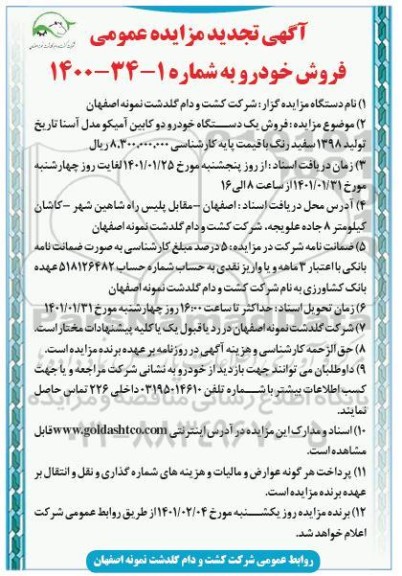 آگهی تجدید مزایده عمومی
فروش خودرو به شماره ۱-۳۴-۱۴۰۰
۱) نام دستگاه مزایده گزار: شرکت کشت و دام گلدشت نمونه اصفهان
۲) موضوع مزایده: فروش یک دستگاه خودرو دو کابین آمیکو مدل آسنا تاریخ
تولید ۱۳۹۸ سفید رنگ با قیمت پایه کارشناسی ۸.۳۰۰.۰۰۰.۰۰۰ ریال
۳) زمان دریافت اسناد: از روز پنجشنبه مورخ ۱۴۰۱/۰۱/۲۵ لغایت روز چهارشنبه
مورخ ۱۴۰۱/۰۱/۳۱ از ساعت ۸ الی ۱۶
۴) آدرس محل دریافت اسناد: اصفهان - مقابل پلیس راه شاهین شهر - کاشان
کیلومتر ۸ جاده علویجه، شرکت کشت و دام گلدشت نمونه اصفهان
۵) ضمانت نامه شرکت در مزایده: ۵ درصد مبلغ کارشناسی به صورت ضمانت نامه
بانکی با اعتبار ۳ ماهه و یا واریز نقدی به حساب شماره حساب ۵۱۸۱۲۶۴۸۲ عهده
بانک کشاورزی به نام شرکت کشت و دام گلدشت نمونه اصفهان
۶) زمان تحویل اسناد: حداکثر تا ساعت ۱۶:۰۰ روز چهارشنبه مورخ ۱۴۰۱/۰۱/۳۱
۷) شرکت گلدشت نمونه اصفهان در رد یا قبول یک یا کلیه پیشنهادات مختار است.
۸) حق الزحمه کارشناسی و هزینه آگهی در روزنامه بر عهده برنده مزایده است.
۹) داوطلبان می توانند جهت بازدید از خودرو به نشانی شرکت مراجعه و یا جهت
کسب اطلاعات بیشتر با شماره تلفن ۰۳۱۹۵۰۱۴۶۱۰ داخلی ۲۲۶ تماس حاصل
نمایند.
۱۰) اسناد و مدارک این مزایده در آدرس اینترنتی www.goldashtco.com قابل
مشاهده است.
۱۱) پرداخت هر گونه عوارض و مالیات و هزینه های شماره گذاری و نقل و انتقال بر
عهده برنده مزایده است.
۱۲) برنده مزایده روز یکشنبه مورخ ۱۴۰۱/۰۲/۰۴ از طریق روابط عمومی شرکت
اعلام خواهد شد.
روابط عمومی شرکت کشت و دام گلدشت نمونه اصفهان